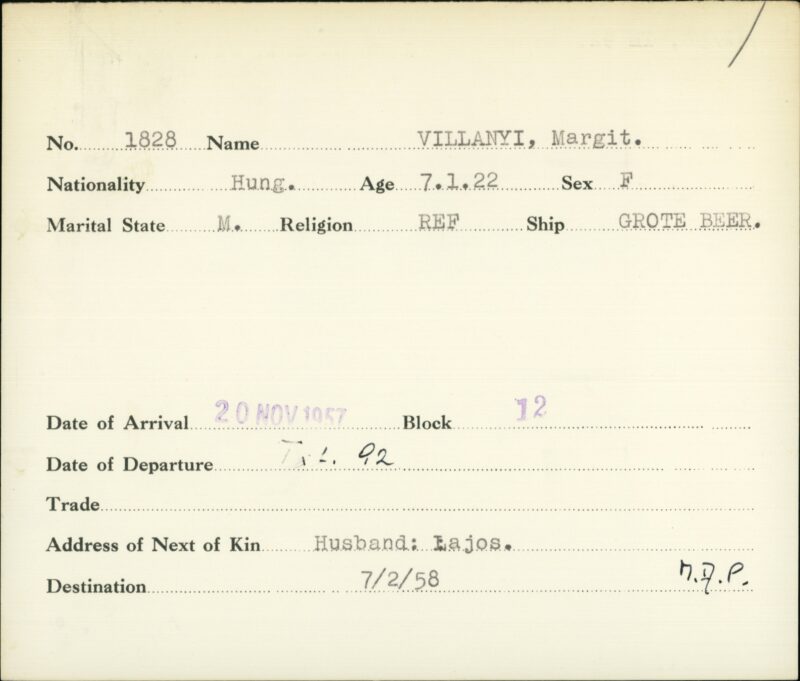 No. 1828 Name VILLANYI, Margit.
Nationality Hung. Age 7.1.22 Sex F
Marital State M. Religion REF Ship GROTE BEER.
Date of Arrival 20 NOV 1957 Block 12
Date of Departure 92
Trade
Address of Next of Kin Husband: Lajos.
Destination 7/2/58